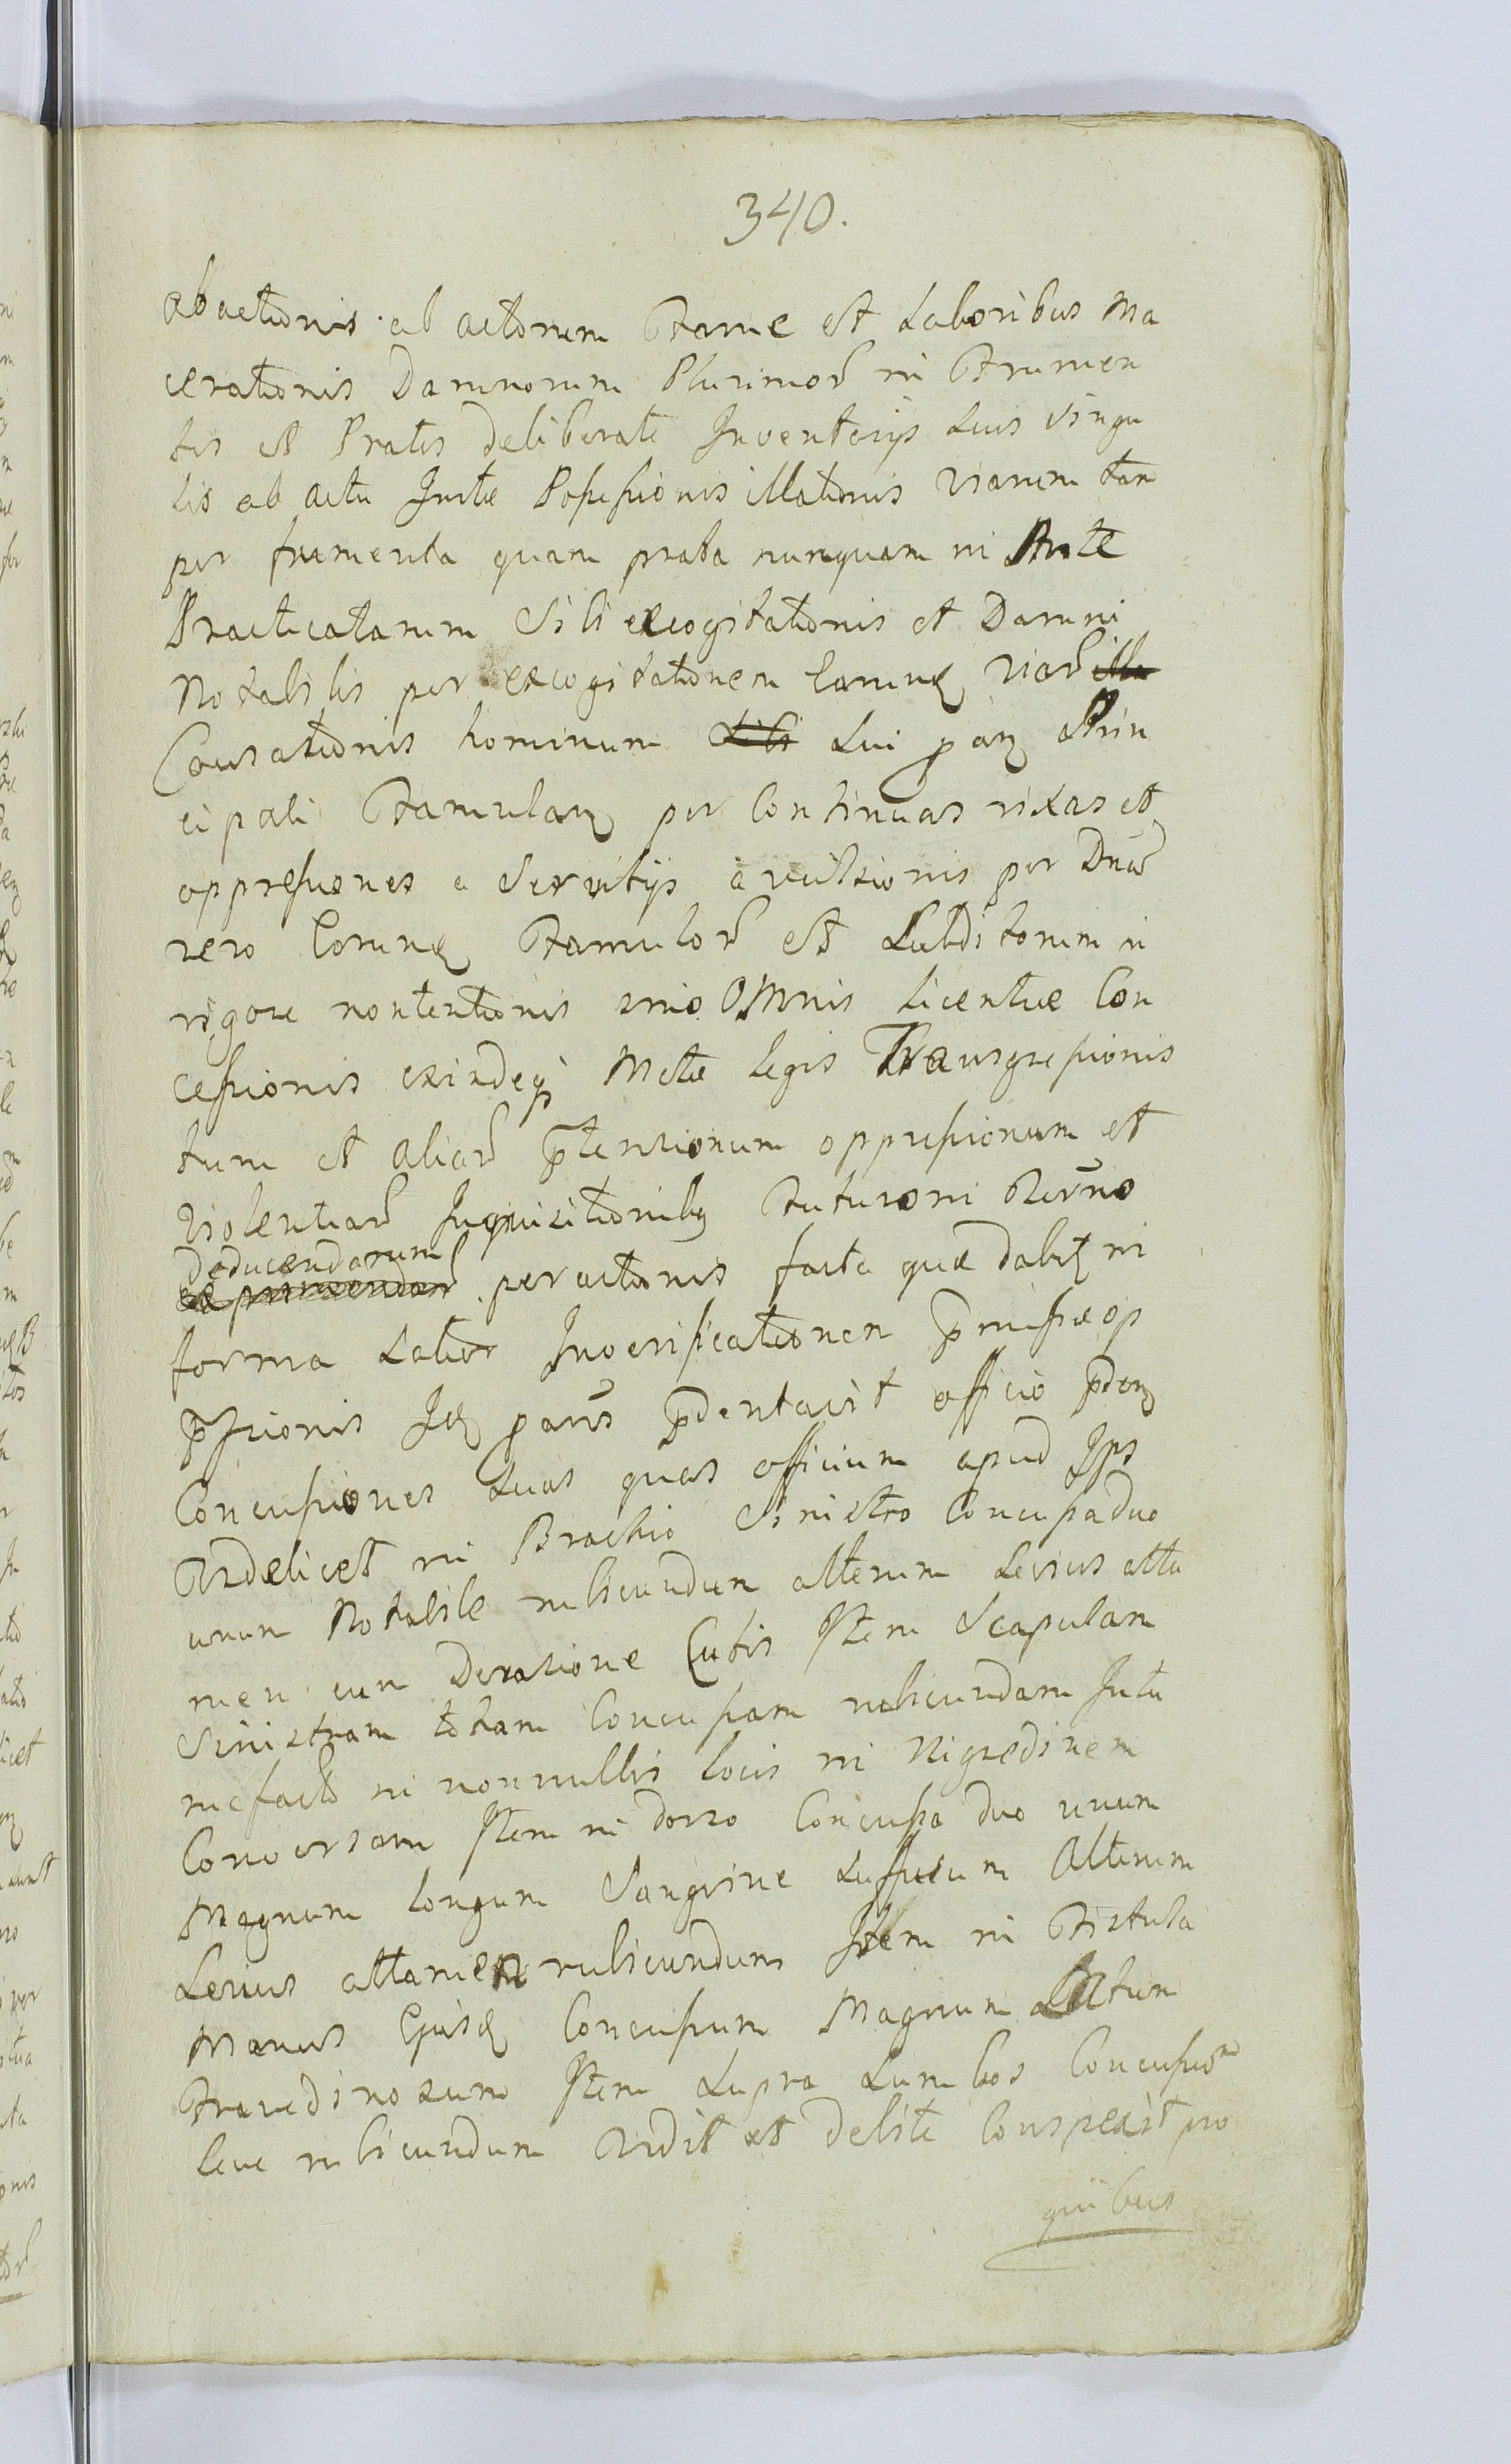 340.
abactionis ab actorum Fame et Laboribus Ma
cerationis Damnorum Plurimor in Frumen
tis et Pratis deliberate Inventarijs Suis singu
lis ab actu Inite Possessionis illationis viarum tam
per frumenta quam prata nunquam in Ante
Practicatarum Sibi excogitationis et Damni
Notabilis per excogitationem earumq viar illa
Causationis hominum Sibi Sui par Prin
cipali Famulan per Continuas rixas et
oppressiones a Servitijs avulsionis per Dnu
vero Eorumq Famulor et Subditorum in
rigore nontentionis imo Omnis licentiae Con
cessionis exindeq Metae Legis Transgressionis
tum et aliar ptensionum oppressionum et
violentiar Inquisitionibq Futuro in Termo
deducendarum
exprimendar peractionis facta quae dabit in
forma Latior Inverificationem pmissae op
pssionis Itq par pdentavit officio pden
Concussiones Suas quas officium apud Ips
Videlicet in Brachio Sinistro Concussa duo
unum Notabile rubicundum alterum Levius atta
men cum Derasione Cutis Item Scapulam
Sinistram totam Concussam rubicundam Intu
mefacto in nonnullis locis in Nigredinem
Conversam Item in dorso Concussa duo unum
Magnum longum Sangvine Suffusum Alterum
Levius attamen rubicundum Item in Fistula
Manus Ejusd Concussum Magnum Latum
Fraudinosum Item Supra Lumbos Concussion
leve rubicundum Vidit et debite Conspexit pro
quibus